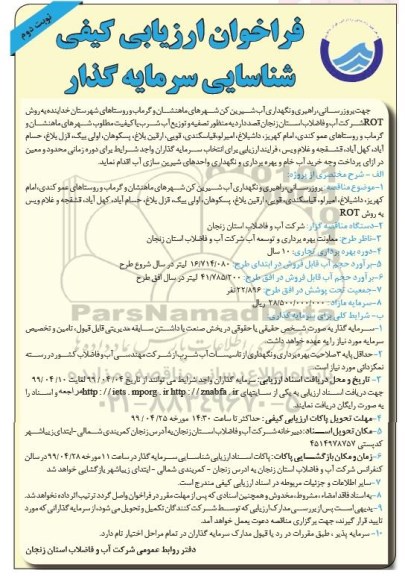 نوبت دوم
فراخوان ارزیابی کیفی
شناسایی سرمایه گذار
جهت بروزرسانی، راهبری و نگهداری آب شیرین کن شهرهای ماهنشان و گرماب و روستاهای شهرستان خدابنده به روش
ROT شرکت آب و فاضلاب استان زنجان قصد دارد به منظور تصفیه و توزیع آب شرب با کیفیت مطلوب شهرهای ماهنشان و
گرماب و روستاهای عمو کندی، امام کهریز، داشبلاغ، امیرلو، قیاسکندی، قویی، ارقین بلاغ، پسکوهان، اولی بیگ، قزل بلاغ، حسام
آباد، کهل آباد، قشقجه و غلام ویس، فرایند ارزیابی برای انتخاب سرمایه گذاران واجد شرایط برای دوره زمانی محدود و معین
در ازای پرداخت وجه خرید آب خام و بهره برداری و نگهداری واحدهای شیرین سازی آب اقدام نماید.
الف - شرح مختصری از پروژه:
۱-موضوع مناقصه: بروزرسانی، راهبری و نگهداری آب شیرین کن شهرهای ماهنشان و گرماب و روستاهای عمو کندی، امام
کهریز، داشبلاغ، امیرلو، قیاسکندی، قویی، ارقین بلاغ، پسکوهان، اولی بیگ، قزل بلاغ، حسام آباد، کهل آباد، قشقجه و غلام ویس
به روش ROT
۲-دستگاه مناقصه گزار: شرکت آب و فاضلاب استان زنجان
۳-ناظر طرح: معاونت بهره برداری و توسعه آب شرکت آب و فاضلاب استان زنجان
۴-دوره بهره برداری تجاری: ۱۰ سال
۵-برآورد حجم آب قابل فروش در ابتدای طرح: ۱۶/۷۱۴/۰۸۰ لیتر در سال شروع طرح
۶-برآورد حجم آب قابل فروش در افق طرح: ۴۱/۷۸۵/۲۰۰ لیتر در سال افق طرح
۷-جمعیت تحت پوشش در افق طرح: ۲۲/۸۹۶ نفر
۸-سرمایه مازاد: ۲۸/۵۰۰/۰۰۰/۰۰۰ ریال
ب- شرایط کلی برای سرمایه گذاری:
۱-سرمایه گذار به صورت شخص حقیقی یا حقوقی در بخش صنعت با داشتن سابقه مدیریتی قابل قبول، تامین و تخصیص
سرمایه مورد نیاز را به عهده خواهد داشت.
۲-حداقل پایه ۳ صلاحیت بهره برداری و نگهداری از تاسیسات آب شرب از شرکت مهندسی آب و فاضلاب کشور در رسته
نمکزدائی مورد نیاز است.
۳- تاریخ و محل دریافت اسناد ارزیابی: سرمایه گذاران واجد شرایط می توانند از تاریخ ۹۹/۰۴/۰۴ لغایت ۹۹/۰۴/۱۰
جهت دریافت اسناد ارزیابی به یکی از سایتهای http://iets.mporg.ir http://znabfa.ir مراجعه و اسناد را
به صورت رایگان دریافت نمایند.
۴-مهلت تحویل پاکات ارزیابی کیفی: حداکثر تا ساعت ۱۴:۳۰ مورخه ۹۹/۰۴/۲۵
۵-مکان تحویل اسناد: دبیرخانه شرکت آب و فاضلاب استان زنجان به آدرس زنجان کمربندی شمالی-ابتدای زیباشهر
کدپستی ۴۵۱۴۹۷۸۷۵۷
۶-زمان و مکان بازگشایی پاکات: پاکات اسناد ارزیابی شناسایی سرمایه گذار در ساعت ۱۱ مورخه ۹۹/۰۴/۲۸ در سالن
کنفرانس شرکت آب و فاضلاب استان زنجان به آدرس زنجان - کمربندی شمالی - ابتدای زیباشهر بازگشایی خواهد شد
۷-سایر اطلاعات و جزئیات مربوطه در اسناد ارزیابی کیفی مندرج است.
۸-به اسناد فاقد امضاء، مشروط، مخدوش و همچنین اسنادی که پس از مهلت مقرر در فراخوان واصل گردد ترتیب اثر داده نخواهد شد.
۹-بدیهی است پس از بررسی مدارک ارزیابی که توسط شرکت کنندگان تکمیل و تحویل می شود، از سرمایه گذارانی که مورد
تایید قرار گیرند، جهت برگزاری مناقصه دعوت بعمل خواهد آمد.
۱۰- سرمایه پذیر، طبق مقررات در رد یا قبول مدارک سرمایه گذاران در تمام مراحل اختیار تام دارد.
دفتر روابط عمومی شرکت آب و فاضلاب استان زنجان